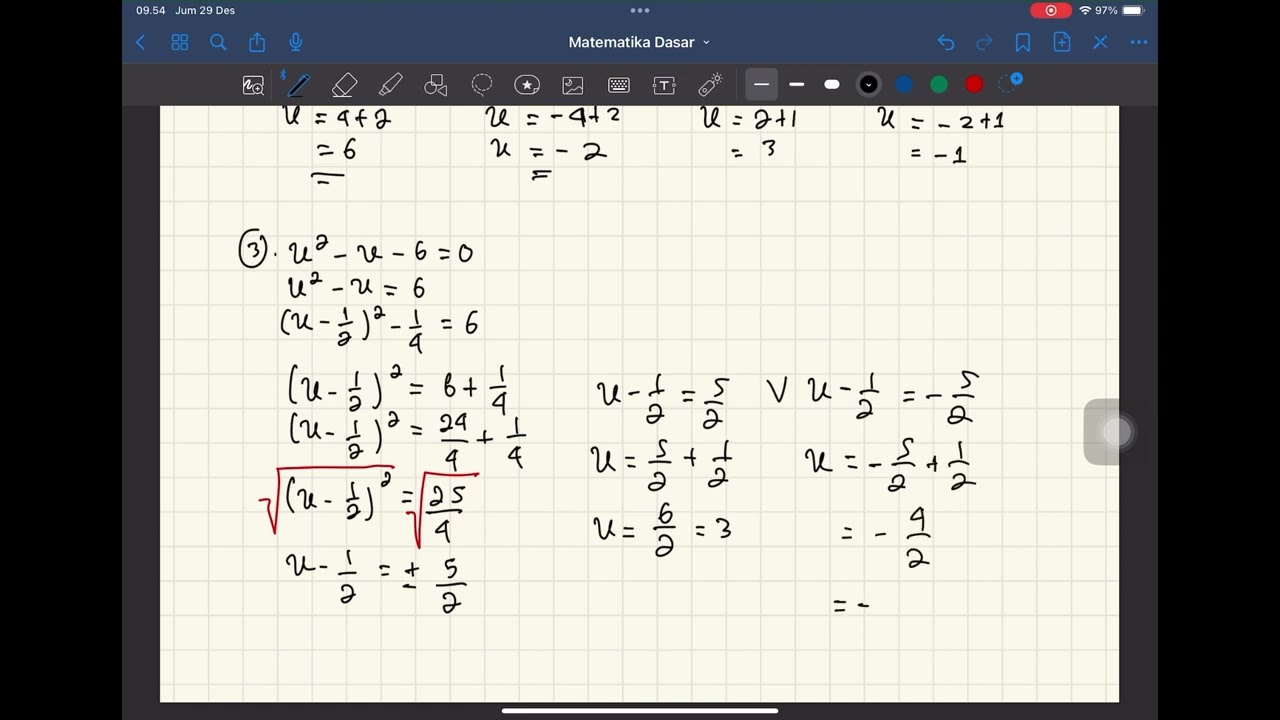 09.54 Jum 29 Des
97%
Matematika Dasar
x = 4+2
= 6
x = -4+2
x = -2
x = 2+1
= 3
x = -2+1
= -1
3. x² - x - 6 = 0
x² - x = 6
(x - 1/2)² - 1/4 = 6
(x - 1/2)² = 6 + 1/4
(x - 1/2)² = 24/4 + 1/4
√(x - 1/2)² = √25/4
x - 1/2 = ± 5/2
x - 1/2 = 5/2 V x - 1/2 = - 5/2
x = 5/2 + 1/2
x = 6/2 = 3
x = - 5/2 + 1/2
= - 4/2
= -